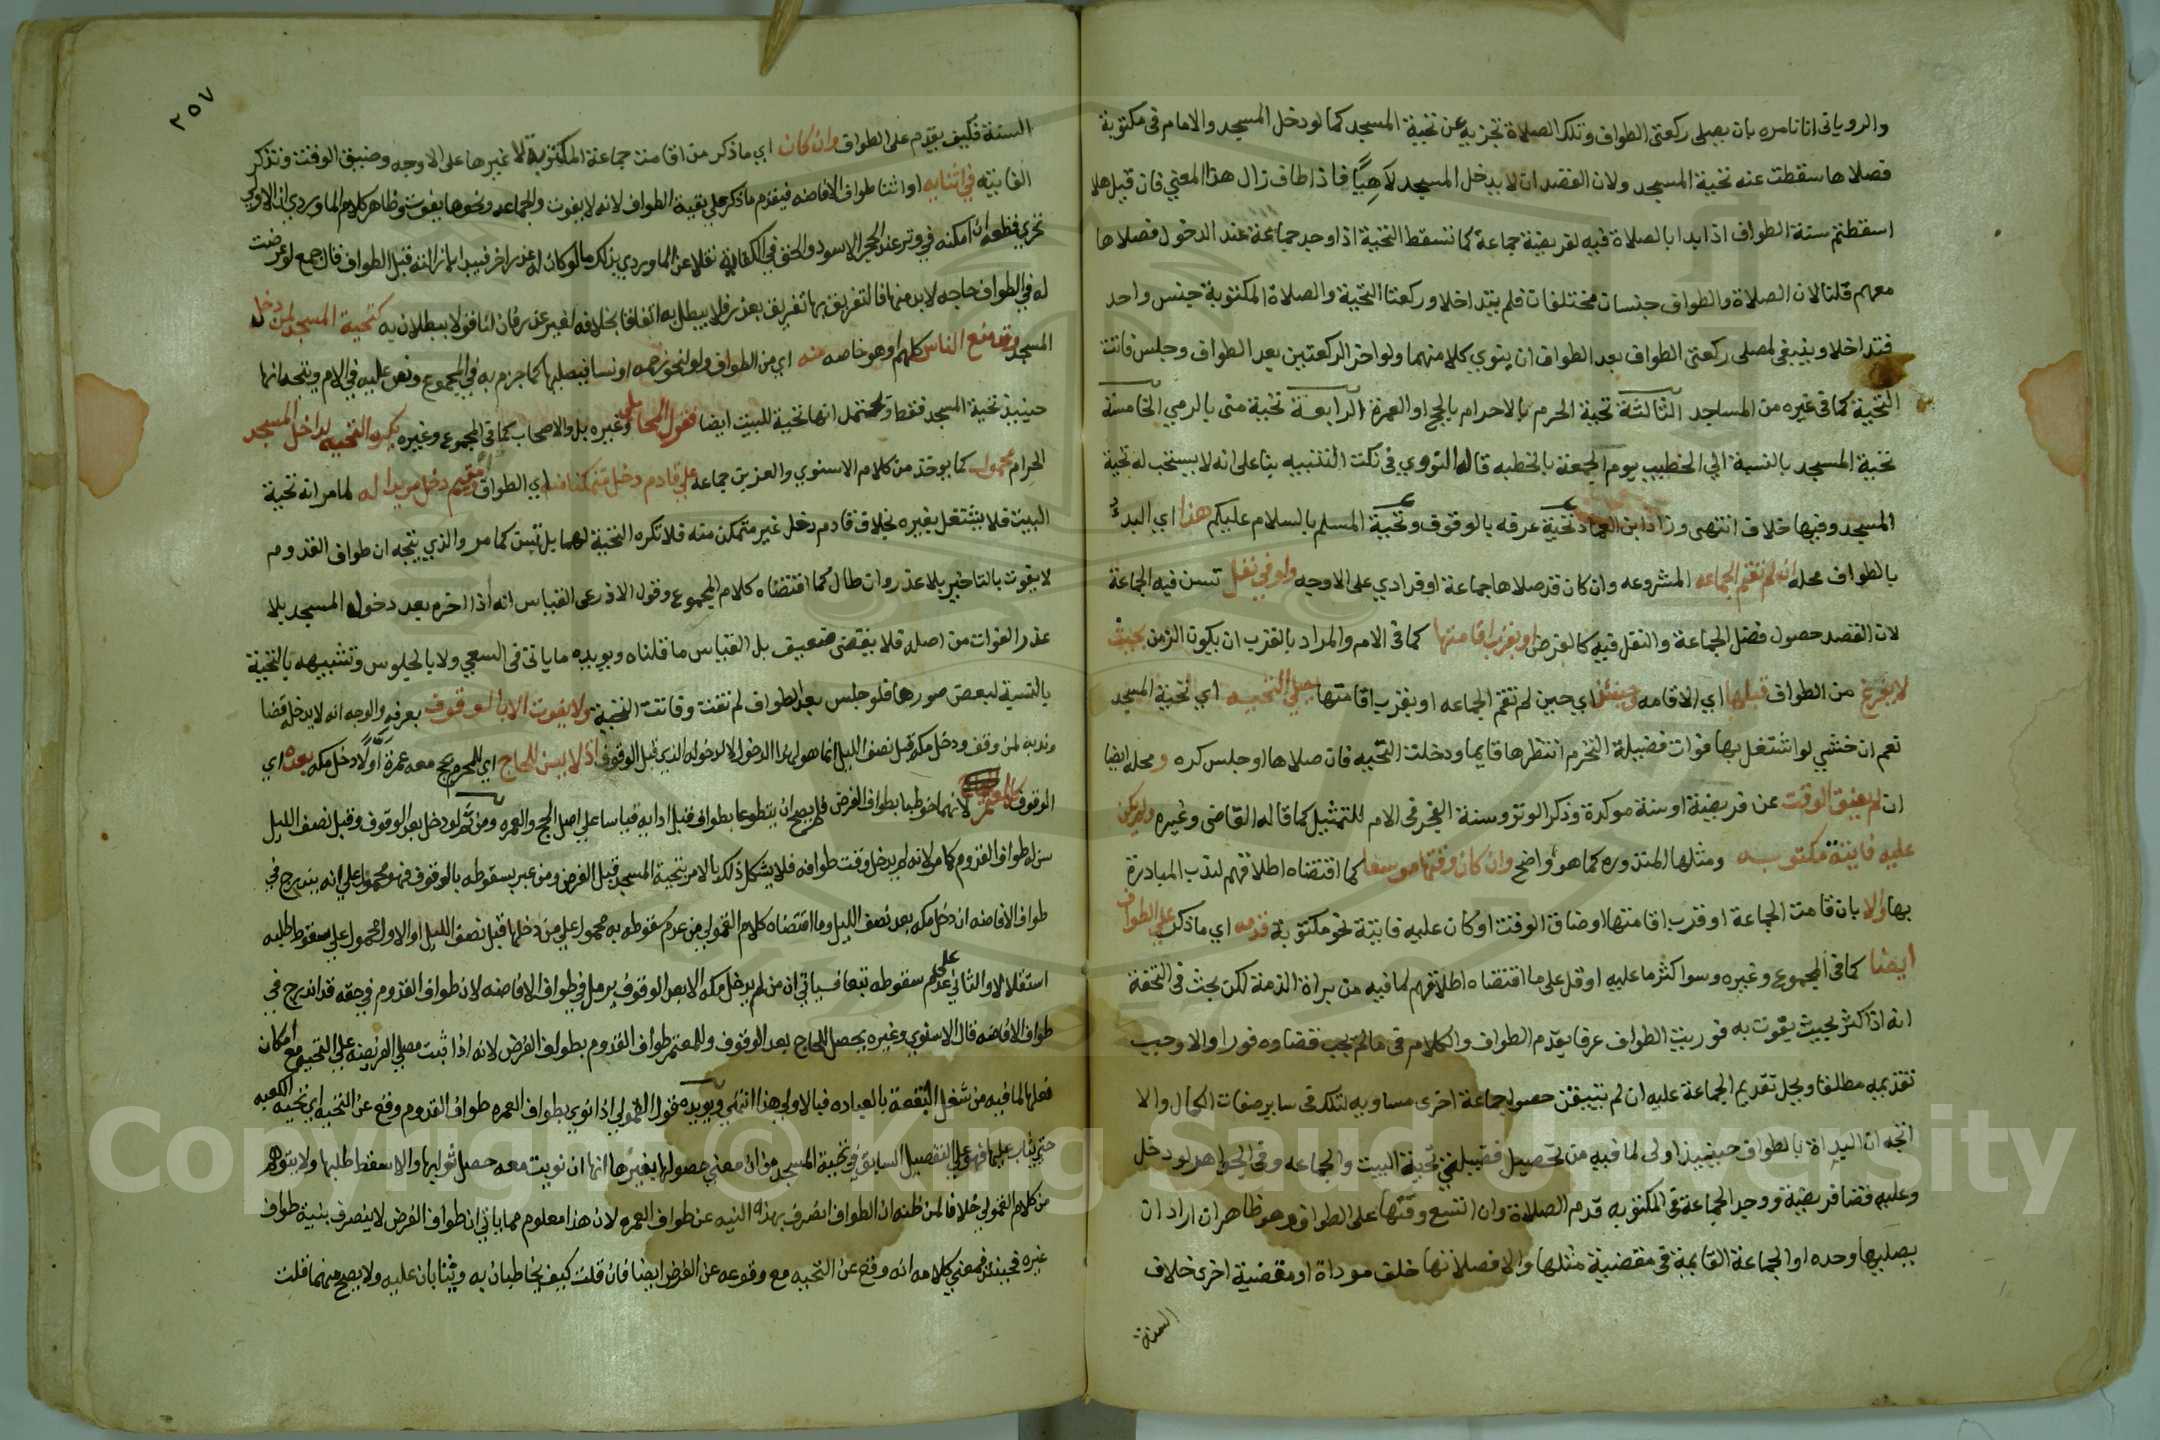 والروياني انا نامره بان يصلى ركعتى الطواف وتلك الصلاة تجزيه عن تحية المسجد كما لو دخل المسجد والامام في مكتوبة
فصلاها سقطت عنه تحية المسجد ولان القصد ان لا يدخل المسجد لاهيًا فاذا طاف زال هذا المعني فان قيل هلا
اسقطتم سنة الطواف اذا بدا بالصلاة فيه لفريضة جماعة كما تسقط التحية اذا وجد جماعة عند الدخول فصلاها
معهم قلنا لان الصلاة والطواف جنسان مختلفان فلم يتداخلا وركعتا التحية والصلاة المكتوبة جنس واحد
فتداخلا وينبغي لمصلى ركعتى الطواف بعد الطواف ان ينوي كلا منهما ولو اخر الركعتين بعد الطواف وجلس فاتت
التحية كما في غيره من المساجد الثالثة تحية الحرم بالاحرام بالحج او العمرة الرابعة تحية منى بالرمي الخامسة
تحية المسجد بالنسبة الي الخطيب يوم الجمعة بالخطبه قاله النووي في نكت التنبيه بنا على انه لا يستحب له تحية
المسجد وفيها خلاف انتهى وزاد ابن العماد تحية عرفه بالوقوف وتحية المسلم بالسلام عليكم هذا اي البد
بالطواف محله انه لم تقم الجماعه المشروعه وان كان قد صلاها جماعة او فرادي على الاوجه ولو في نفل تسن فيه الجماعة
لان القصد حصول فضل الجماعة والنفل فيه كالفرض او يقرب اقامتها كما في الام والمراد بالقرب ان يكون الزمن بحيث
لا يفرغ من الطواف قبلها اي الاقامه وحينئذ اي حين لم تقم الجماعه او يقرب اقامتها يصلي التحيه اي تحية المسجد
نعم ان خشي لو اشتغل بها فوات فضيلة التحرم انتظرها قايما ودخلت التحيه فان صلاها او جلس كره ومحله ايضا
ان لم يضق الوقت عن فريضة او سنة موكدة وذكر الوتر وسنة الفجر في الام للتمثيل كما قاله القاضى وغيره ولم يكن
عليه فايتة مكتوبه ومثلها المنذوره كما هو واضح وان كان وقتها موسعا كما اقتضاه اطلاقهم لندب المبادرة
بها والا بان قامت الجماعة او قرب اقامتها او ضاق الوقت او كان عليه فايتة نحو مكتوبة قدمه اي ما ذكر على الطواف
ايضا كما في المجموع وغيره وسوا كثر ما عليه او قل على ما اقتضاه اطلاقهم لما فيه من براة الذمة لكن بحث في التحفة
انه اذا كثر بحيث يفوت به فوريت الطواف عرفا يقدم الطواف والكلام في ما لم يجب قضاوه فورا والا وجب
تقديمه مطلقا ومحل تقديم الجماعة عليه ان لم يتيقن حصول جماعة اخرى مساويه لتلك في ساير صفات الكمال والا
اتجه ان البداة بالطواف حينيذ اولى لما فيه من تحصيل فضيلتي تحية البيت والجماعه وفي الجواهر لو دخل
وعليه قضا فريضة ووجد الجماعة في المكتوبه قدم الصلاة وان اتسع وقتها على الطواف وهو ظاهر ان اراد ان
يصليها وحده او الجماعة القايمة في مقضية مثلها والا فصلاتها خلف موداة او مقضية اخرى خلاف
السنة
٢٥٧
السنة فكيف يقدم على الطواف وان كان اي ما ذكر من اقامت جماعة المكتوبة لا غيرها على الاوجه وضيق الوقت وتذكر
الفايته في اثنايه او اثنا طواف الافاضه فيقدم ما ذكر علي بقية الطواف لانه لا يفوت والجماعه ونحوها يفوت وظاهر كلام الماوردي ان الاولي
تحري قطعه ان امكنه في وتر عند الحجر الاسود والحق في الكفاية نقلا عن الماوردي بذلك ما لو كان له عذر اخر فيبدا بازالته قبل الطواف قال جمع لو عرضت
له في الطواف حاجه لا بد منها فالتفريق بها تفريق بعذر فلا يبطل به اتفاقا بخلافه لغير عذر فان لنا قولا ببطلانه به كتحية المسجد لمن دخل
المسجد وقد منع الناس كلهم او هو خاصه منه اي من الطواف ولو لنحو زحمه او نسا فيصليها كما جزم به في المجموع ونص عليه في الام ويتجه انها
حينيذ تحية المسجد فقط ويحتمل انها تحية للبيت ايضا فقول المحاملي وغيره بل والاصحاب كما في المجموع وغيره يكره التحيه لداخل المسجد
الحرام محمول كما يوخذ من كلام الاسنوي والعز بن جماعه علي قادم دخل متمكنا منه اي الطواف او مقيم دخل مريدا له لما مر انه تحية
البيت فلا يشتغل بغيره بخلاف قادم دخل غير متمكن منه فلا تكره التحية لهما بل تسن كما مر والذي يتجه ان طواف القدوم
لا يفوت بالتاخير بلا عذر وان طال كما اقتضاه كلام المجموع وقول الاذرعى القياس انه اذا اخره بعد دخوله المسجد بلا
عذر الفوات من اصله فلا يقضى ضعيف بل القياس ما قلناه ويويده ما ياتى فى السعي ولا بالجلوس وتشبيهه بالتحية
بالنسبة لبعض صورها فلو جلس بعد الطواف لم تفت وفاتت التحية ولا يفوت الا بالوقوف بعرفه والوجه انه لا يدخله قضا
وندبه لمن وقف ودخل مكه قبل نصف الليل انما هو لهذا الدخول لا لدخوله الذي قبل الوقوف اذ لا يسن للحاج اي المحرم بحج معه عمرة او لا دخل مكه بعد اي
الوقوف كالمعتمر لانهما خوطبا بطواف الفرض فلم يصح ان يتطوعا بطواف قبل ادايه قياسا على اصل الحج والعمره ومن ثم لو دخل بعد الوقوف وقبل نصف الليل
سن له طواف القدوم كما مر لانه لم يدخل وقت طوافه فلا يشكل ذلك بالامر بتحية المسجد قبل الفرض ومن عبر بسقوطه بالوقوف فهو محمول علي انه يندرج في
طواف الافاضه ان دخل مكه بعد نصف الليل وما اقتضاه كلام القمولي من عدم سقوطه به محمول علي من دخلها قبل نصف الليل او الاول محمول علي سقوط طلبه
استقلالا والثاني على عدم سقوطه تبعا فسياتي ان من لم يدخل مكه الا بعد الوقوف يرمل في طواف الافاضه لان طواف القدوم في حقه قد اندرج في
طواف الافاضه قال الاسنوي وغيره يحصل للحاج بعد الوقوف وللمعتمر طواف القدوم بطواف الفرض لانه اذا ثبت مصلي الفريضة علي التحيه مع امكان
فعلها لما فيه من شغل البقعة بالعباده فبالاولي هذا انتهي ويويده قول القمولي اذا نوي بطواف العمره طواف القدوم وقع عن التحيه اي تحية الكعبه
حتي يثاب عليها فهو علي التفصيل السابق في تحية المسجد من ان معني حصولها بغيرها انها ان نويت معه حصل ثوابها والا سقط طلبها ولا يتوهم
من كلام القمولي خلافا لمن ظنه ان الطواف انصرف بهذه النيه عن طواف العمره لان هذا معلوم مما ياتي ان طواف الفرض لا ينصرف بنية طواف
غيره فحينئذ فمعني كلامه انه وقع عن التحيه مع وقوعه عن الفرض ايضا فان قلت كيف يخاطبان به ويثابان عليه ولا يصح منهما قلت
Copyright © King Saud University